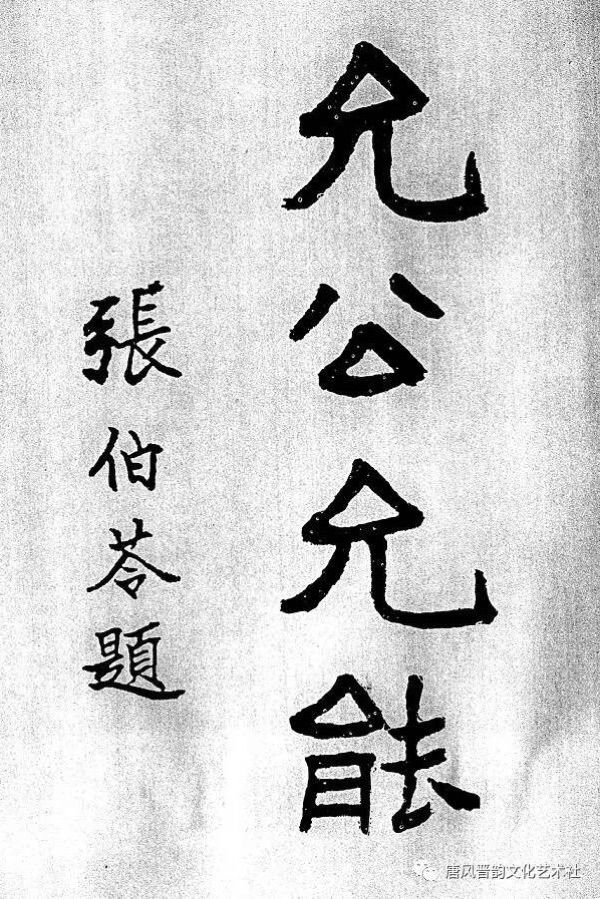 允公允能
張伯苓題
唐风晋韵文化艺术社